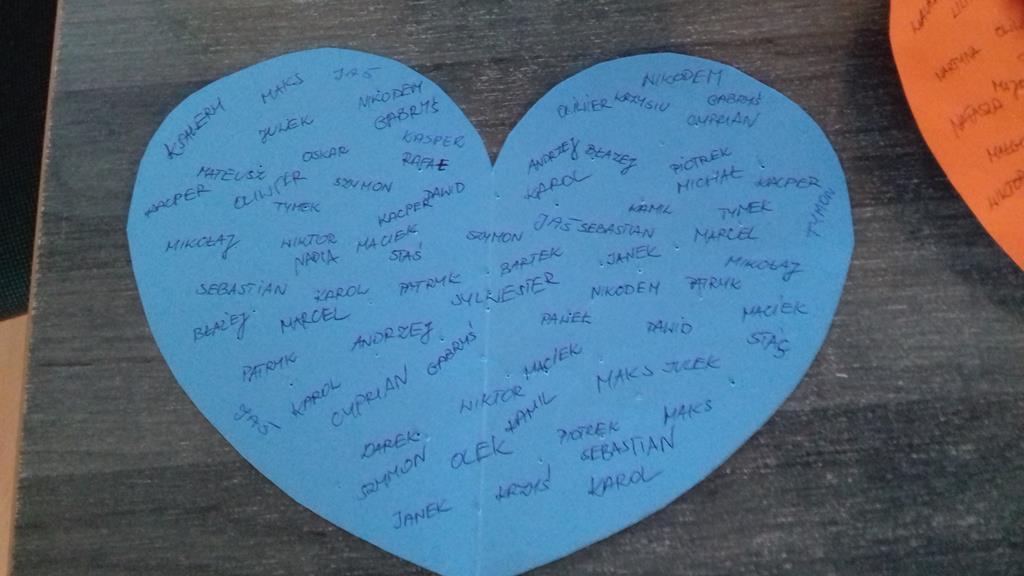 KSAWERY
MAKS
JAŚ
NIKODEM
GABRYŚ
JULEK
KASPER
RAFAŁ
OSKAR
MATEUSZ
KACPER
OLIWIER
SZYMON
DAWID
TYMEK
KACPER
MIKOŁAJ
WIKTOR
MACIEK
NADIA
STAŚ
SEBASTIAN
KAROL
PATRYK
BŁAŻEJ
MARCEL
ANDRZEJ
SYLWESTER
PATRYK
GABRYŚ
JAŚ
KAROL
CYPRIAN
DAREK
SZYMON
OLEK
JANEK
NIKODEM
OLIWIER
KRZYSIU
GABRYŚ
CYPRIAN
ANDRZEJ
BŁAŻEJ
PIOTREK
KAROL
MICHAŁ
KACPER
TYMON
KAMIL
TYMEK
SZYMON
JAŚ
SEBASTIAN
MARCEL
BARTEK
JANEK
MIKOŁAJ
NIKODEM
PATRYK
PAWEŁ
DAWID
MACIEK
STAŚ
MACIEK
WIKTOR
MAKS
JULEK
KAMIL
MAKS
PIOTREK
SEBASTIAN
KRZYŚ
KAROL